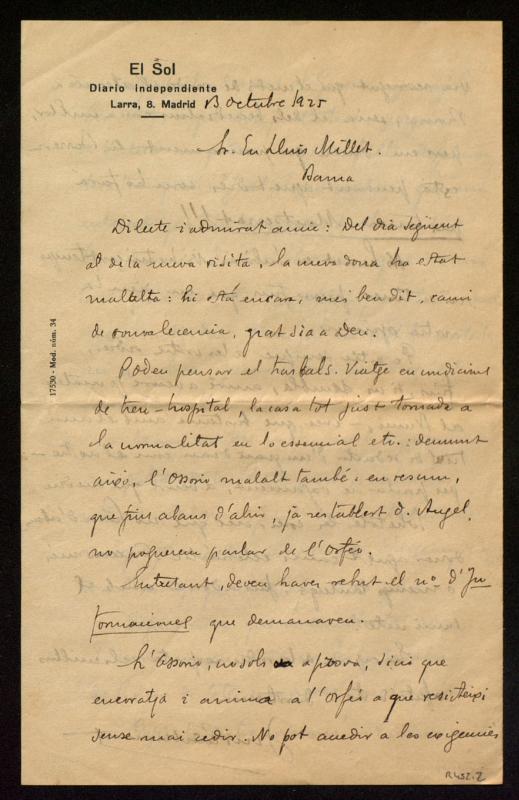 El Sol
Diario independiente
Larra, 8. Madrid 13 octubre 1925
Sr. En Lluis Millet.
Barna
Dilecte i admirat amic: Del dia següent
al de la meva visita, la meva dona ha estat
malalta: hi està encara, mes ben dit, camí
de convalecencia, grat sia a Deu.
Podeu pensar el trasbals. Viatge en condicions
de tren-hospital, la casa tot just tornada a
la normalitat en lo essencial etc.: demunt
això, l'Ossorio malalt també: en resum,
que fins abans d'ahir, ja restablert D. Angel,
no poguerem parlar de l'Orfeó.
Entretant, deveu haver rebut el nº d'In-
formaciones que demanaveu.
L'Ossorio, no sols aprova, sino que
encoratja i anima a l'Orfeó a que resisteixi
sense mai cedir. No pot accedir a les exigencies
17530 - Mod. núm. 34
R452.2